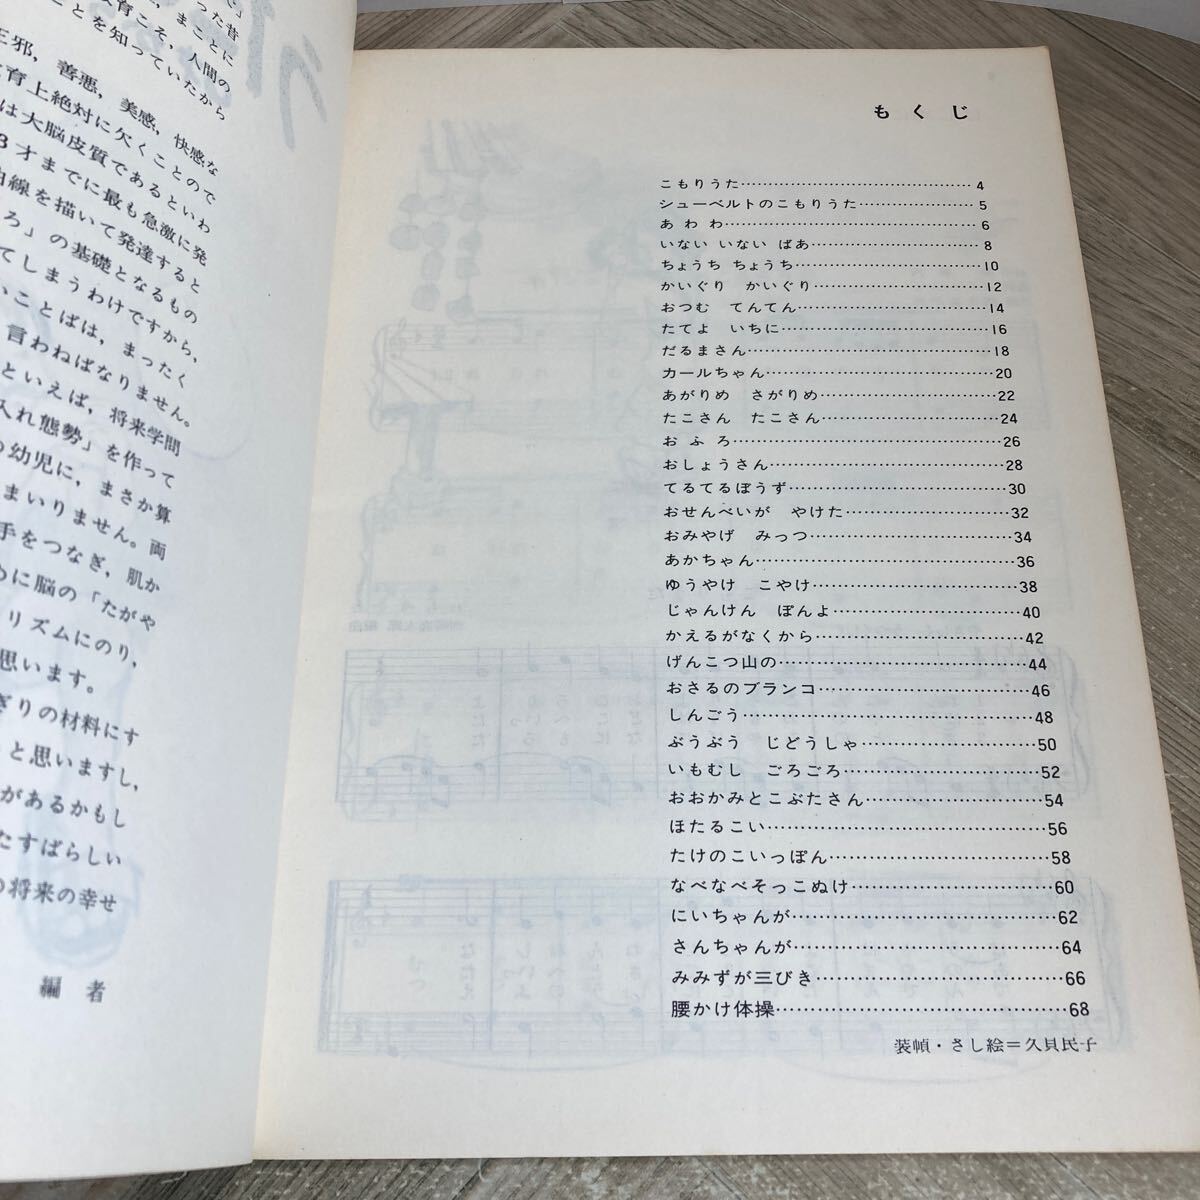 った昔
まことに
教育こそ，人間の
ことを知っていたから
正邪，善悪，美感，快感な
育上絶対に欠くことので
は大脳皮質であるといわ
3才までに最も急激に発
曲線を描いて発達すると
ろ」の基礎となるもの
てしまうわけですから，
いことばは，まったく
言わねばなりません。
といえば，将来学問
入れ態勢」を作って
の幼児に，まさか算
まいりません。両
手をつなぎ，肌か
めに脳の「たがや
リズムにのり，
思います。
ぎりの材料にす
と思いますし，
があるかもし
たすばらしい
の将来の幸せ
編者
もくじ
こもりうた…………4
シューベルトのこもりうた…………5
あわわ…………6
いない いない ばあ…………8
ちょうち ちょうち…………10
かいぐり かいぐり…………12
おつむ てんてん…………14
たてよ いちに…………16
だるまさん…………18
カールちゃん…………20
あがりめ さがりめ…………22
たこさん たこさん…………24
おふろ…………26
おしょうさん…………28
てるてるぼうず…………30
おせんべいが やけた…………32
おみやげ みっつ…………34
あかちゃん…………36
ゆうやけ こやけ…………38
じゃんけん ぽんよ…………40
かえるがなくから…………42
げんこつ山の…………44
おさるのブランコ…………46
しんごう…………48
ぶうぶう じどうしゃ…………50
いもむし ごろごろ…………52
おおかみとこぶたさん…………54
ほたるこい…………56
たけのこいっぽん…………58
なべなべそっこぬけ…………60
にいちゃんが…………62
さんちゃんが…………64
みみずが三びき…………66
腰かけ体操…………68
装幀・さし絵＝久貝民子